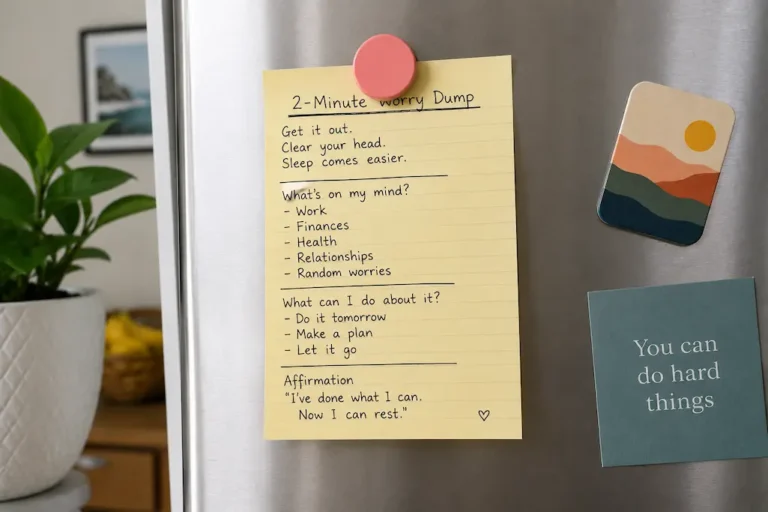 2-Minute Worry Dump
Get it out.
Clear your head.
Sleep comes easier.
What's on my mind?
- Work
- Finances
- Health
- Relationships
- Random worries
What can I do about it?
- Do it tomorrow
- Make a plan
- Let it go
Affirmation
"I've done what I can.
Now I can rest."
You can
do hard
things